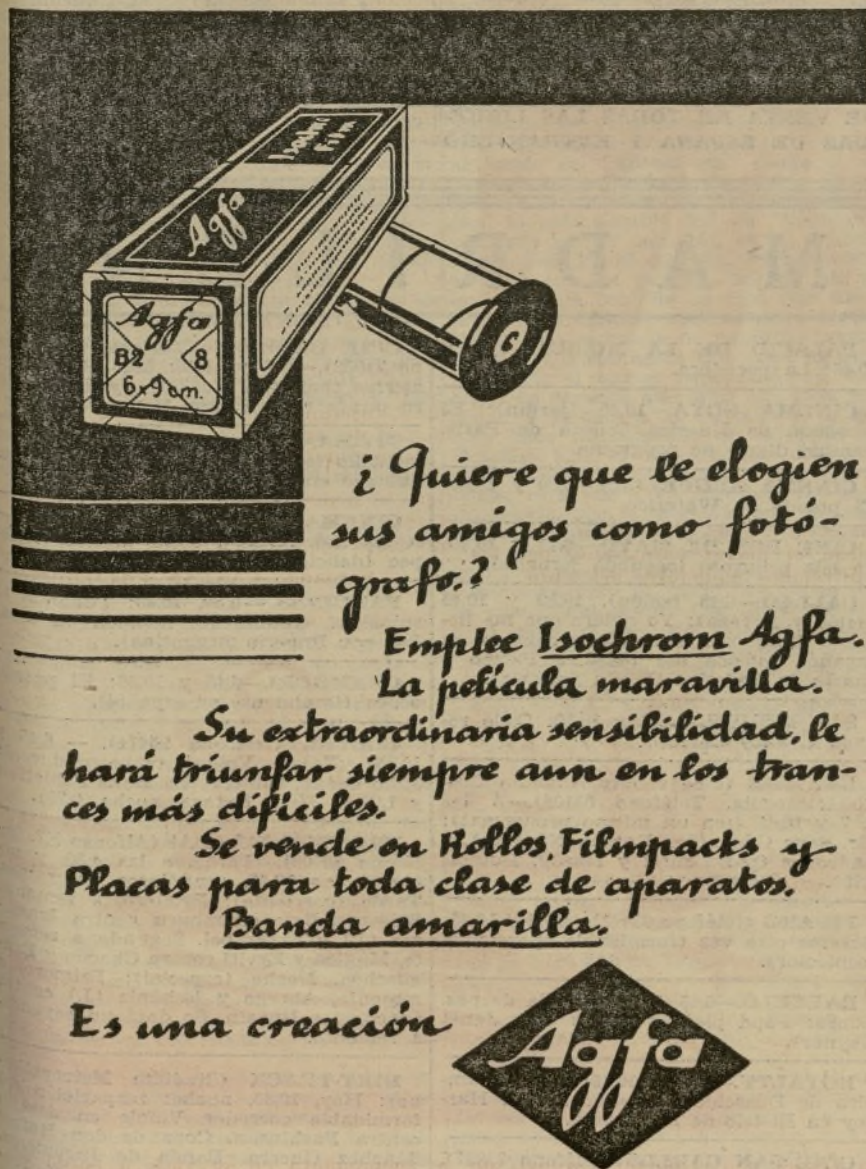 Isochrom
Film
Agfa
Agfa
B2 8
6x9 cm.
¿Quiere que le elogien
sus amigos como fotó-
grafo.?
Emplee Isochrom Agfa.
La película maravilla.
Su extraordinaria sensibilidad, le
hará triunfar siempre aun en los tran-
ces más difíciles.
Se vende en Rollos, Filmpacks y
Placas para toda clase de aparatos.
Banda amarilla.
Es una creación
Agfa